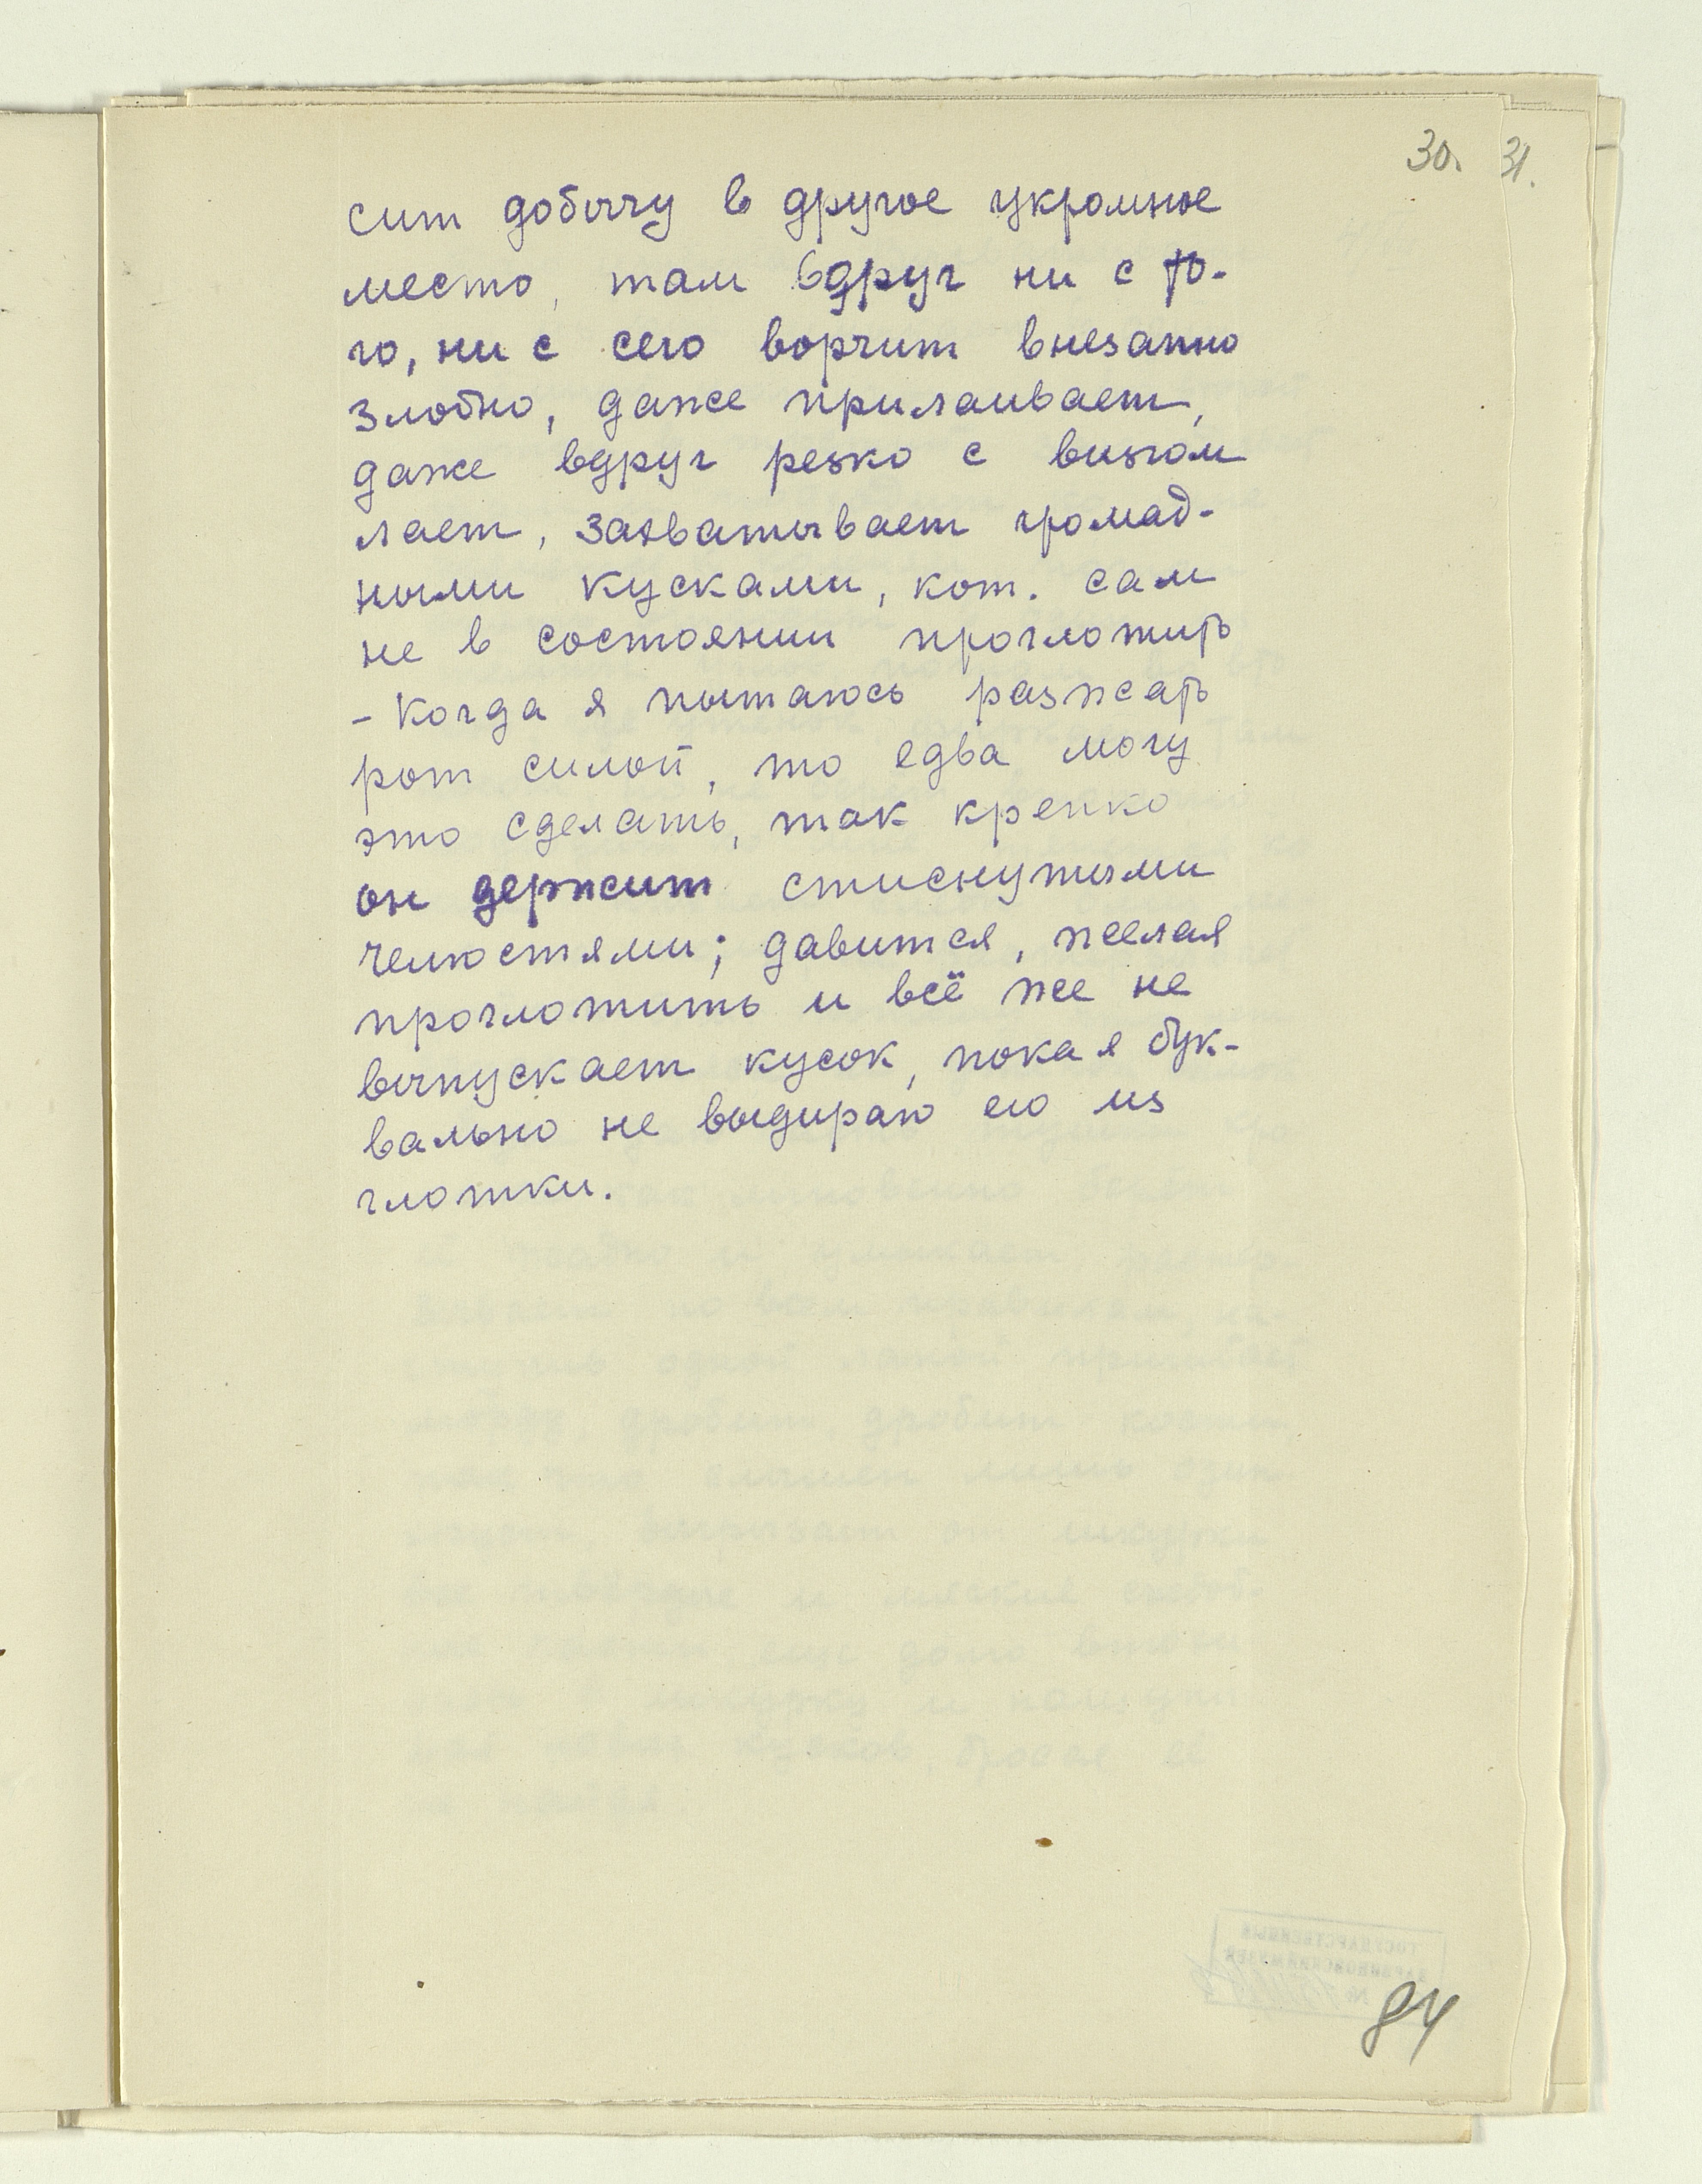 30. 31.
сит добычу в другое укромное
место, там вдруг ни с то-
го, ни с сего ворчит внезапно
злобно, даже прилаивает,
даже вдруг резко с визгом
лает, захватывает громад-
ными кусками, кот. сам
не в состоянии проглотить
- Когда я пытаюсь разжать
рот силой, то едва могу
это сделать, так крепко
он держит стиснутыми
челюстями; давится, желая
проглотить и всё же не
выпускает кусок, пока я бук-
вально не выдираю его из
глотки.
84